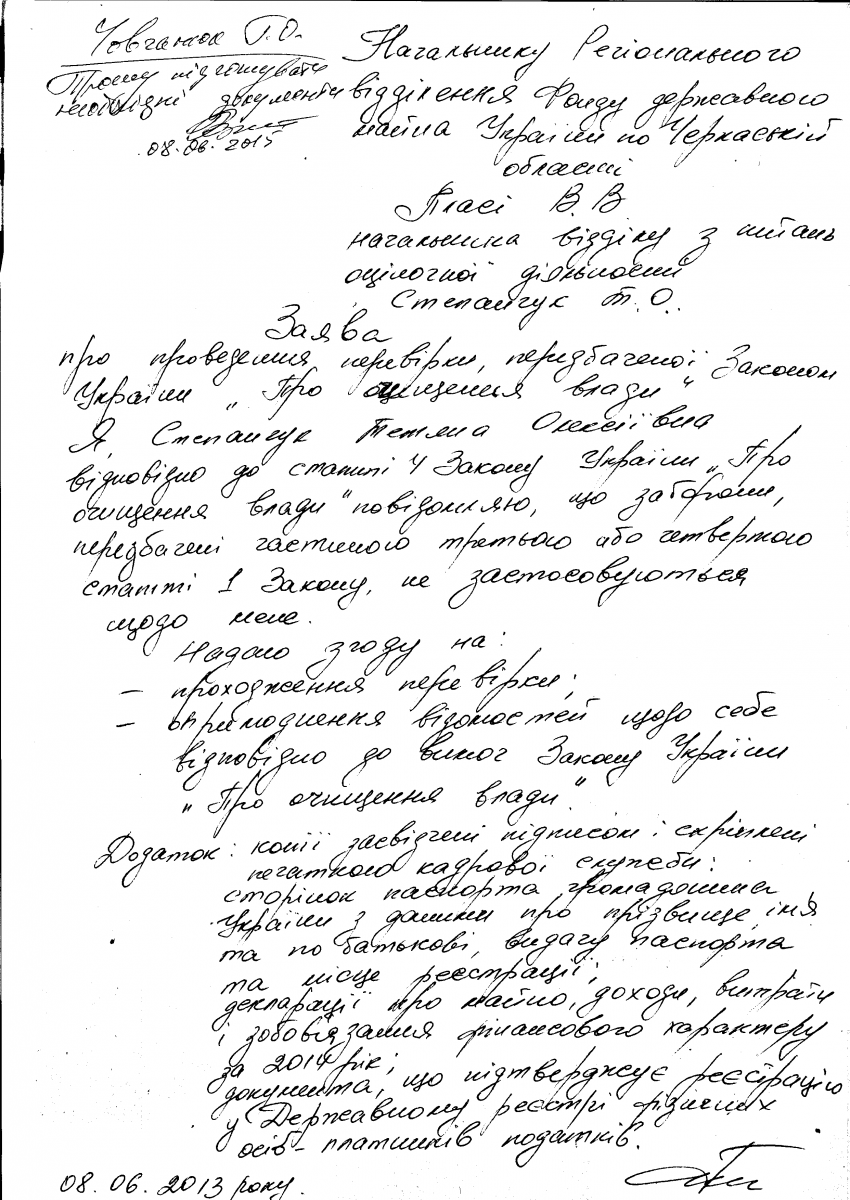 Човганюк Г.О.
Прошу підготувати
необхідні документи
08.06.2015
Начальнику Регіонального
відділення Фонду державного
майна України по Черкаській
області
Пласі В.В
начальника відділу з питань
оцілочної діяльності
Степанчук Т.О.
Заява
про проведення перевірки, передбаченої Законом
України „Про очищення влади"
Я, Степанчук Тетяна Олексіївна
відповідно до статті 4 Закону України „Про
очищення влади" повідомляю, що заборони,
передбачені частиною третьою або четвертою
статті 1 Закону, не застосовуються
щодо мене.
Надаю згоду на:
– проходження перевірки;
– оприлюднення відомостей щодо себе
відповідно до вимог Закону України
„Про очищення влади".
Додаток: копії засвідчені підписом і скріплені
печаткою кадрової служби:
сторінок паспорта громадянина
України з даними про прізвище, ім'я
та по батькові, видачу паспорта
та місце реєстрації;
декларації про майно, доходи, витрати
і зобов'язання фінансового характеру
за 2014 рік;
документа, що підтверджує реєстрацію
у Державному реєстрі фізичних
осіб – платників податків.
08.06.2013 року.